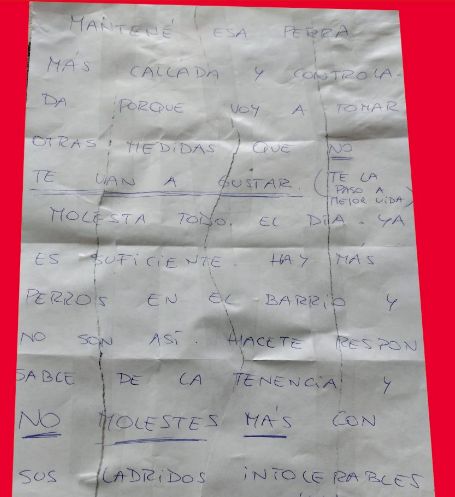 MANTENÉ ESA PERRA
MÁS CALLADA Y CONTROLA-
DA PORQUE VOY A TOMAR
OTRAS MEDIDAS QUE NO
TE VAN A GUSTAR. (TE LA
PASO A
MEJOR VIDA)
MOLESTA TODO EL DÍA. YA
ES SUFICIENTE. HAY MÁS
PERROS EN EL BARRIO Y
NO SON ASÍ. HACETE RESPON
SABLE DE LA TENENCIA Y
NO MOLESTES MÁS CON
SUS LADRIDOS INTOLERABLES